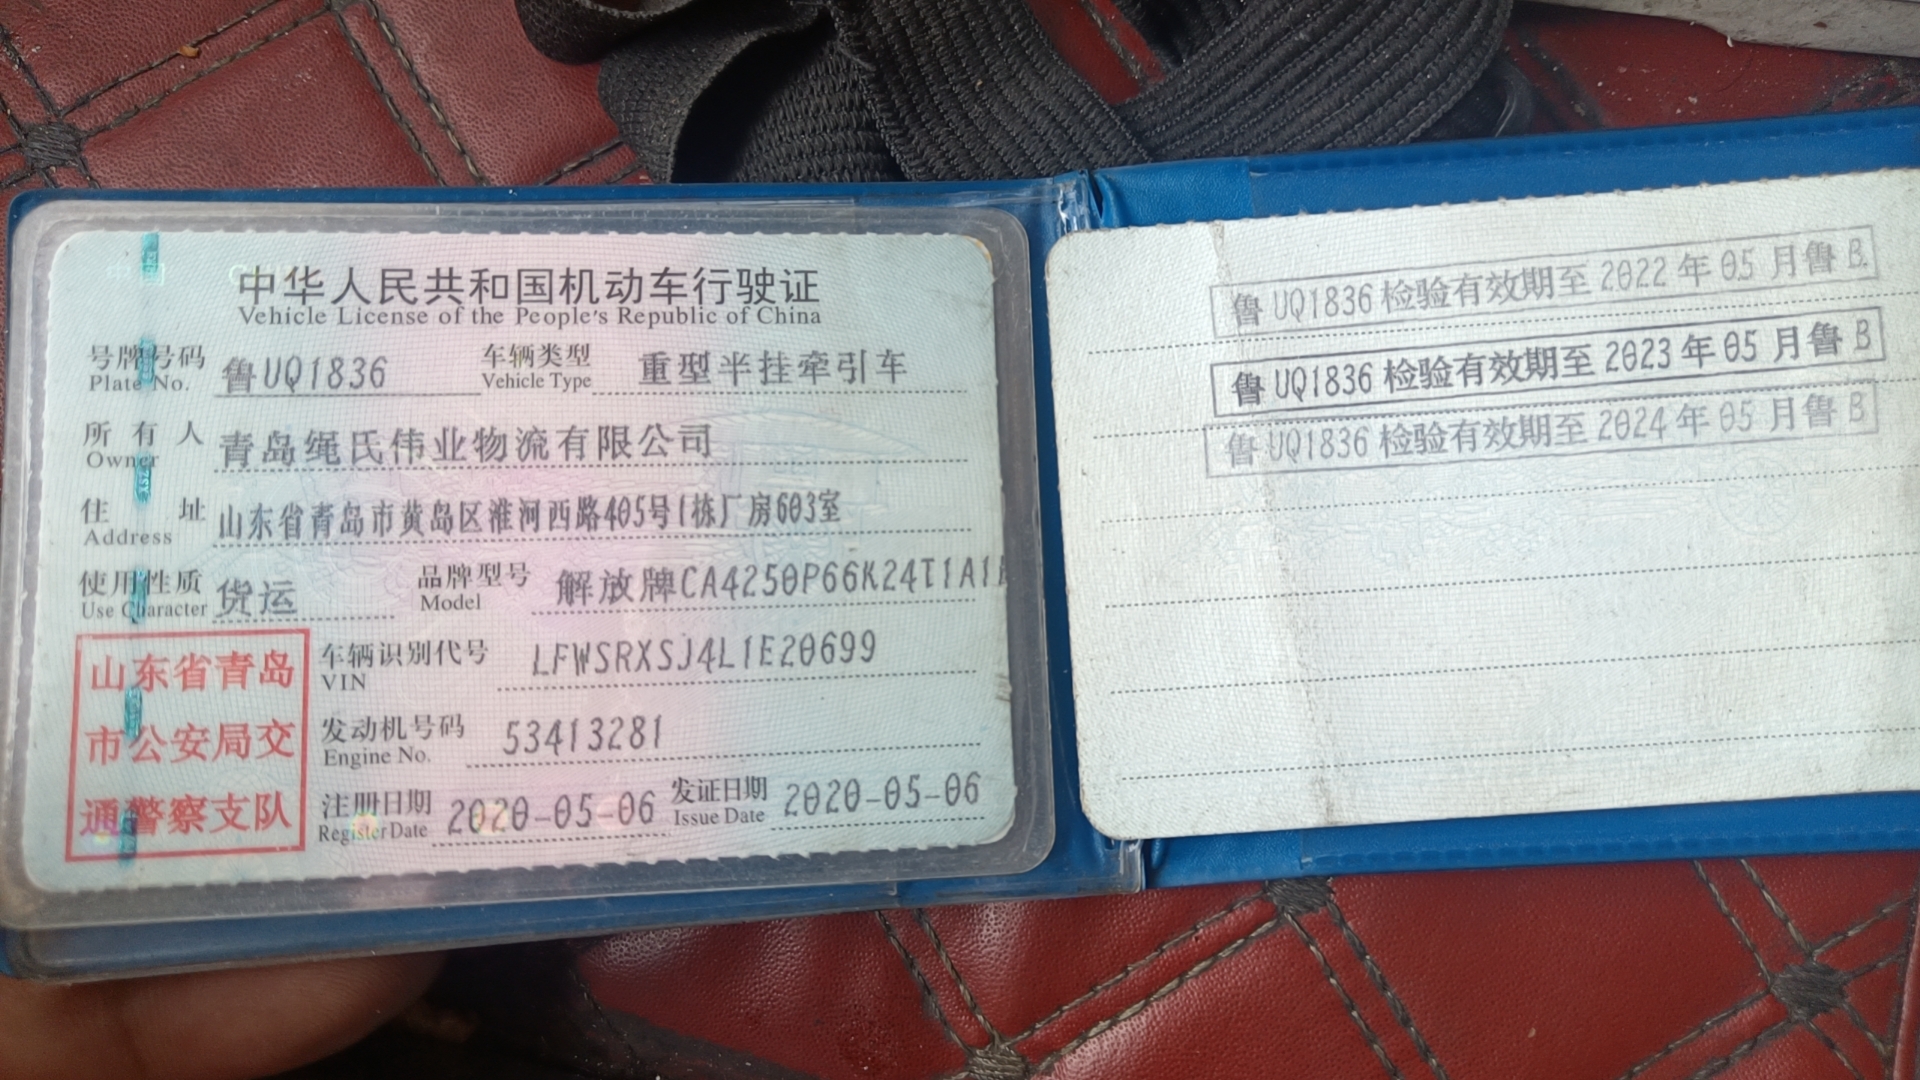 中华人民共和国机动车行驶证
Vehicle License of the People's Republic of China
号牌号码 鲁UQ1836 车辆类型 重型半挂牵引车
Plate No. Vehicle Type
所有人 青岛绳氏伟业物流有限公司
Owner
住址 山东省青岛市黄岛区淮河西路405号1栋厂房603室
Address
使用性质 货运 品牌型号 解放牌CA4250P66K24T1A1
Use Character Model
山东省青岛
市公安局交
通警察支队
车辆识别代号 LFWSRXSJ4L1E20699
VIN
发动机号码 53413281
Engine No.
注册日期 2020-05-06 发证日期 2020-05-06
Register Date Issue Date
鲁UQ1836检验有效期至2022年05月鲁B
鲁UQ1836检验有效期至2023年05月鲁B
鲁UQ1836检验有效期至2024年05月鲁B